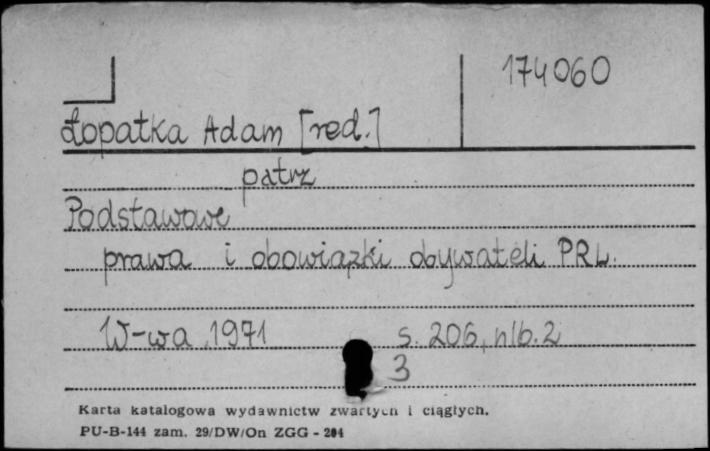 174060
Łopatka Adam [red.]
patrz
Podstawowe
prawa i obowiązki obywateli PRL.
W-wa, 1971 s. 206, nlb. 2
3
Karta katalogowa wydawnictw zwartych i ciągłych.
PU-B-144 zam. 29/DW/On ZGG - 204